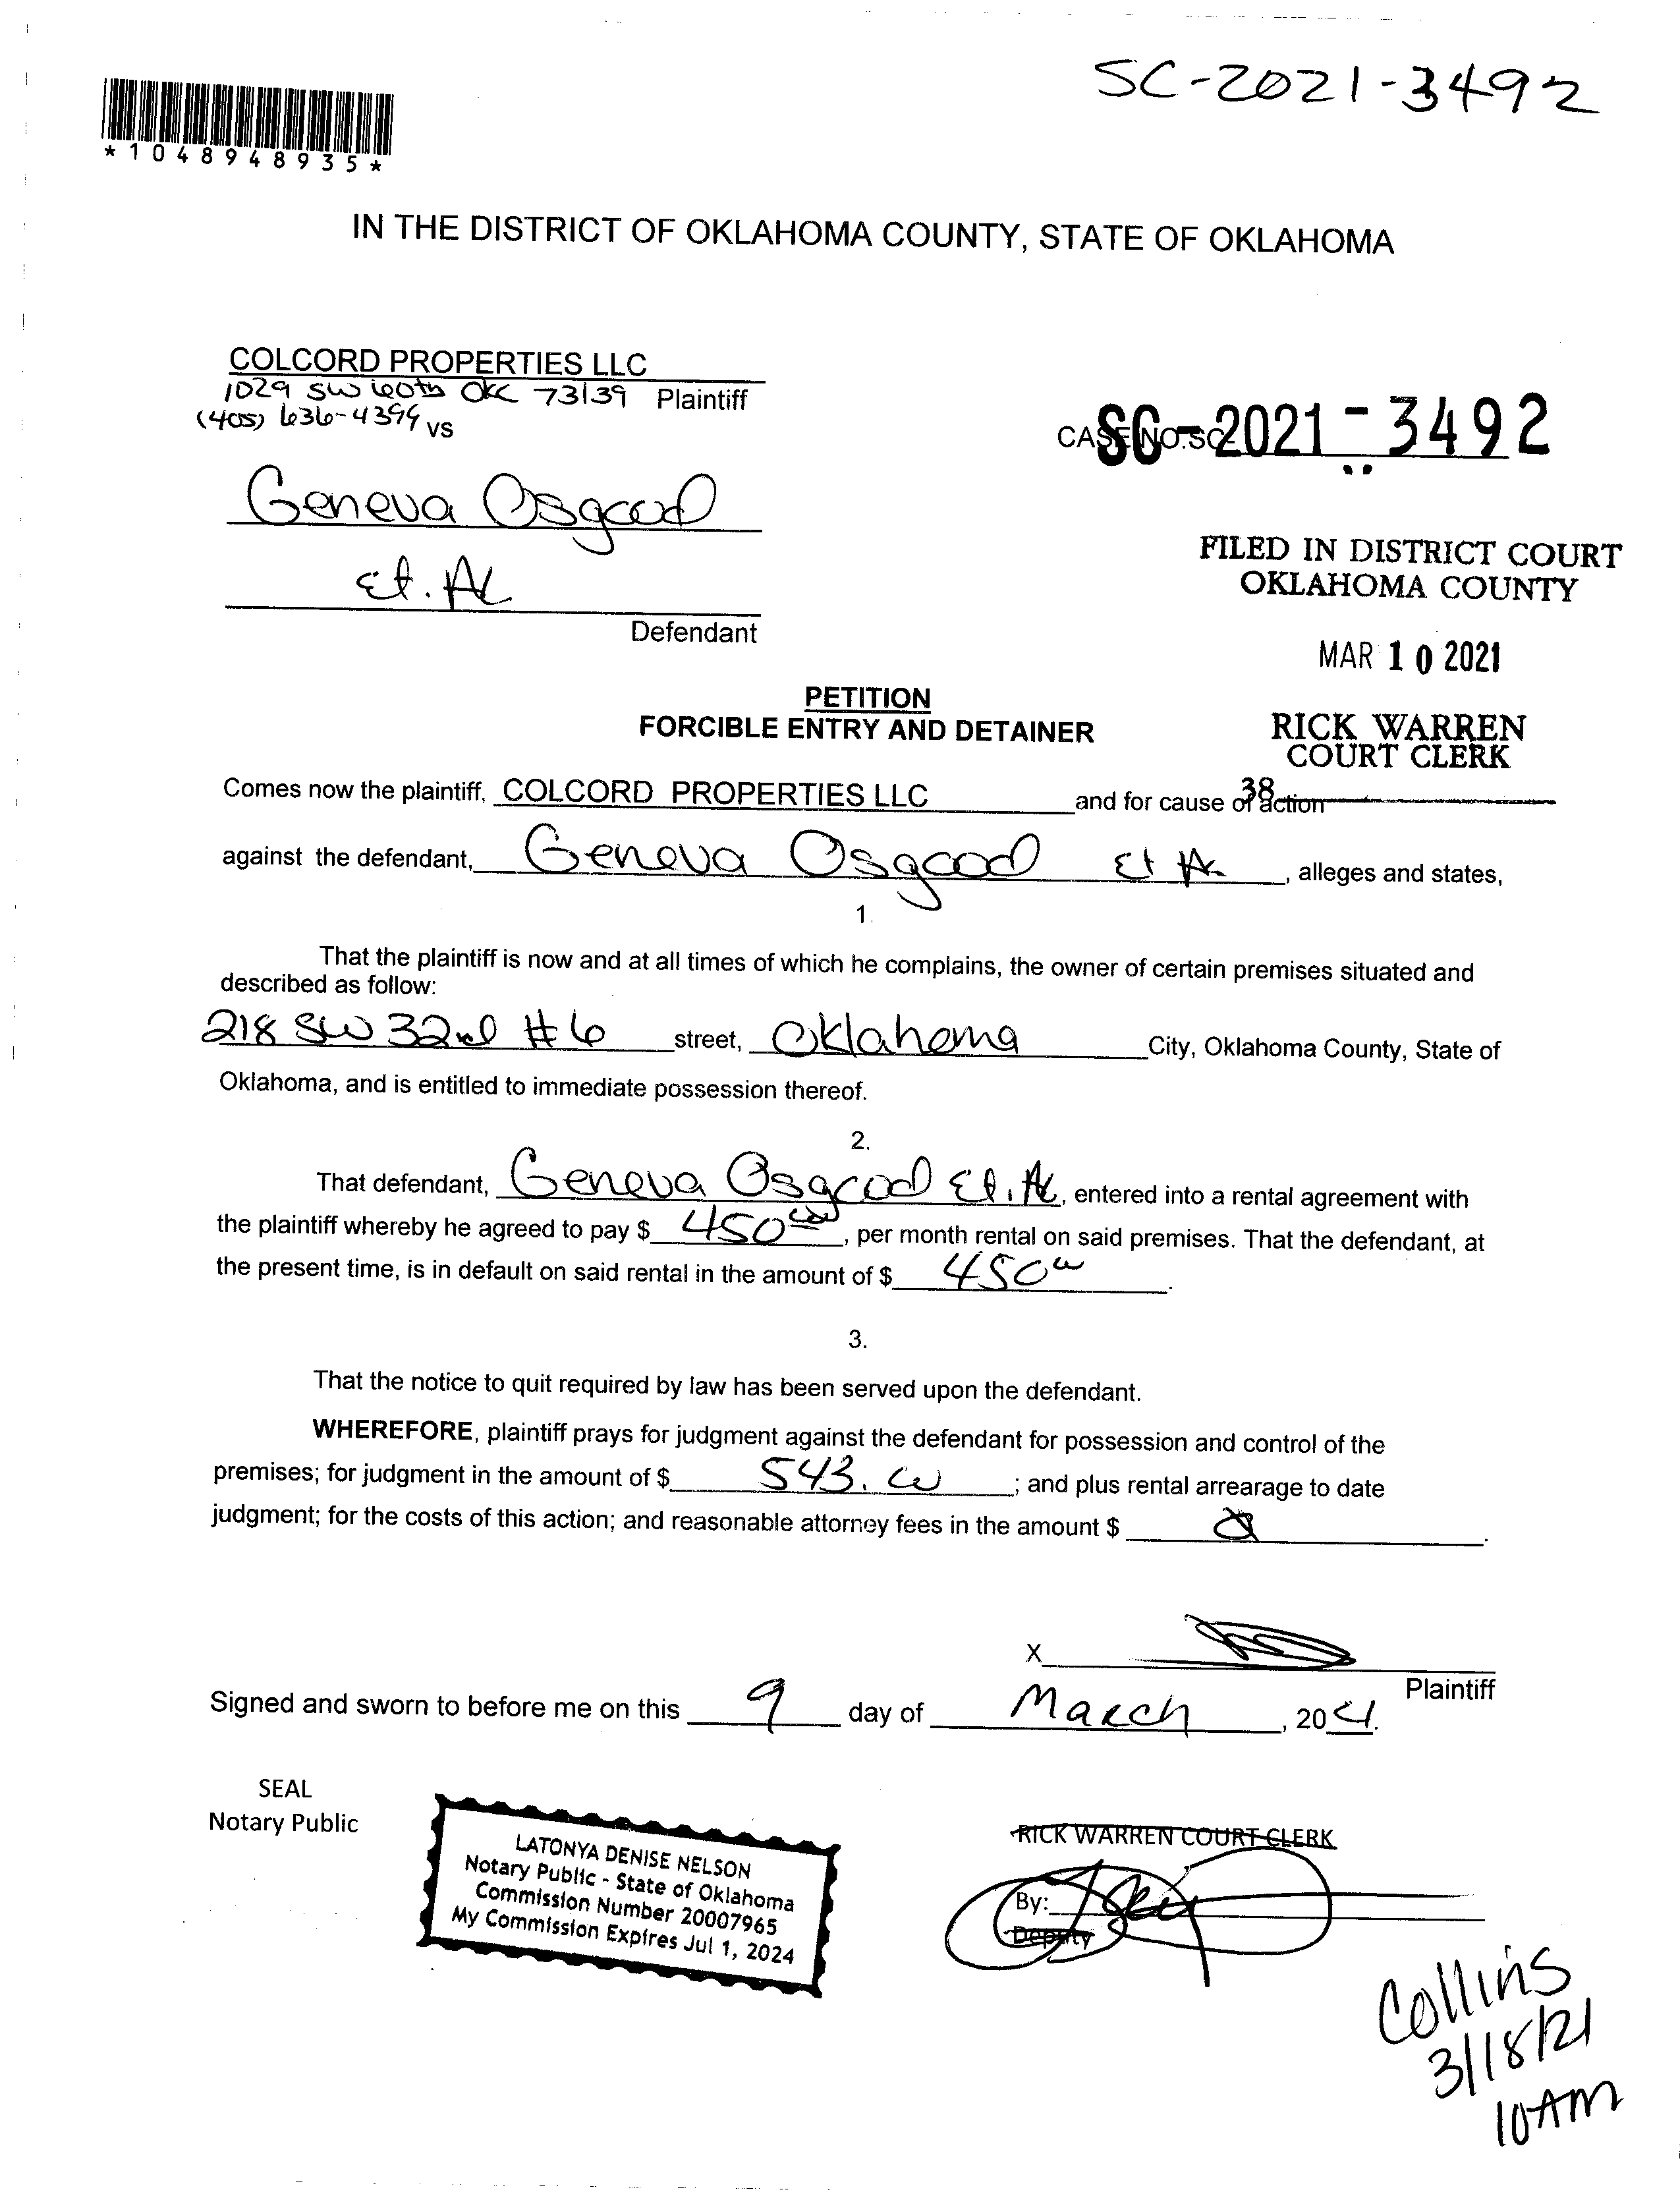 SC-2021-3492
*1048948935*
IN THE DISTRICT OF OKLAHOMA COUNTY, STATE OF OKLAHOMA
COLCORD PROPERTIES LLC
1029 SW 60th OKC 73139 Plaintiff
(405) 636-4394 vs
CASE NO. SC-
SC-2021-3492
Geneva Osgood
Et. Al
Defendant
FILED IN DISTRICT COURT
OKLAHOMA COUNTY
MAR 10 2021
RICK WARREN
COURT CLERK
38
PETITION
FORCIBLE ENTRY AND DETAINER
Comes now the plaintiff, COLCORD PROPERTIES LLC and for cause of action
against the defendant, Geneva Osgood Et Al, alleges and states,
1.
That the plaintiff is now and at all times of which he complains, the owner of certain premises situated and
described as follow:
218 SW 32nd #6 street, Oklahoma City, Oklahoma County, State of
Oklahoma, and is entitled to immediate possession thereof.
2.
That defendant, Geneva Osgood Et. Al, entered into a rental agreement with
the plaintiff whereby he agreed to pay $ 450 00, per month rental on said premises. That the defendant, at
the present time, is in default on said rental in the amount of $ 450 00.
3.
That the notice to quit required by law has been served upon the defendant.
WHEREFORE, plaintiff prays for judgment against the defendant for possession and control of the
premises; for judgment in the amount of $ 543.00; and plus rental arrearage to date
judgment; for the costs of this action; and reasonable attorney fees in the amount $
X
Plaintiff
Signed and sworn to before me on this 9 day of March, 2021.
SEAL
Notary Public
LATONYA DENISE NELSON
Notary Public - State of Oklahoma
Commission Number 20007965
My Commission Expires Jul 1, 2024
RICK WARREN COURT CLERK
By:
Deputy
Collins
3/18/21
10AM